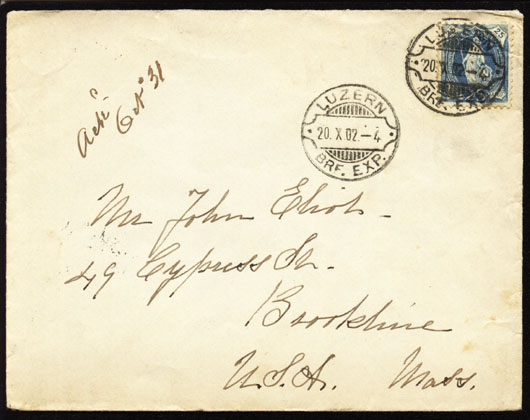 25
LUZERN
20. X 02.–4
BRF. EXP.
LUZERN
20. X 02.–4
BRF. EXP.
Ackd
Oct 31
Mr John Eliot
49 Cypress St.
Brookline
U.S.A. Mass.